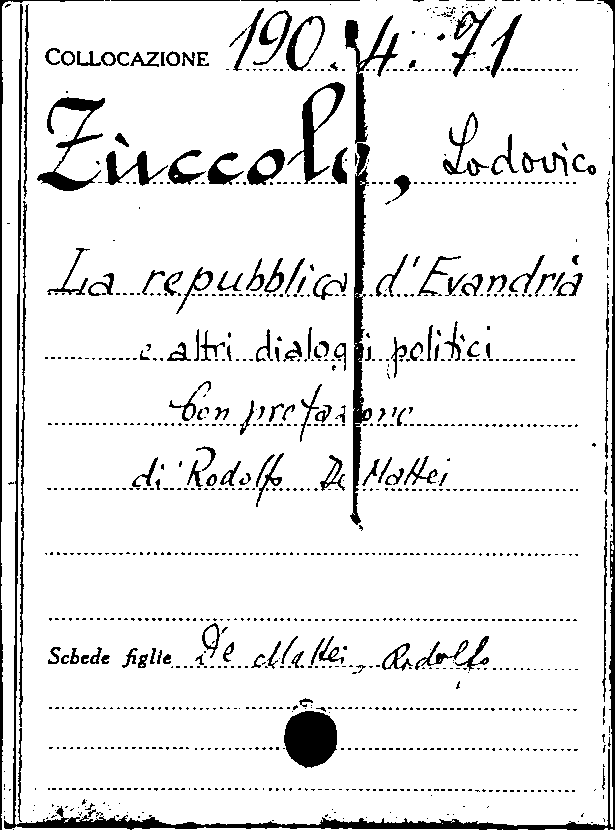 COLLOCAZIONE 190.4.71
Zùccolo, Lodovico
La repubblica d'Evandria
e altri dialoghi politici
Con prefazione
di Rodolfo De Mattei
Schede figlie De Mattei, Rodolfo